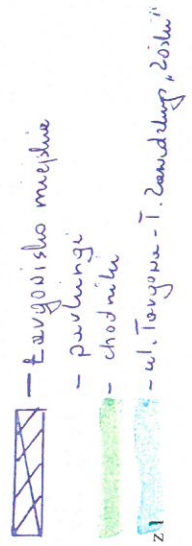 - targowisko miejskie
- parkingi
- chodniki
- ul. Targowa - T. Zawadzkiego „Zośki”
z1